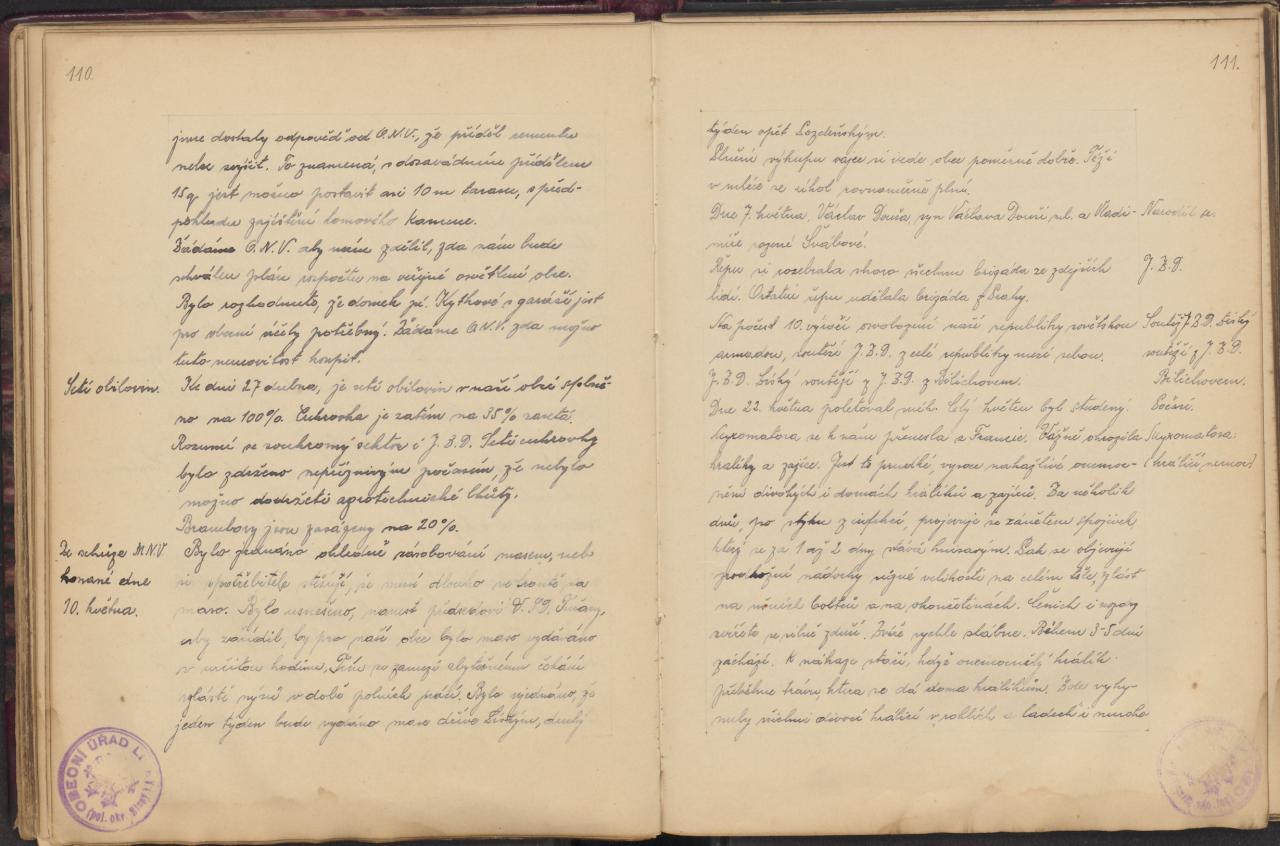 110.
jsme dostaly odpověď od O.N.V., že příděl cementu
nelze zvýšit. To znamená, s dosavadním přídělem
15 q jest možno postavit asi 10 m tarasu, s před-
pokladu zajištění lomového kamene.
Žádáme O.N.V. aby nám zdělil, zda nám bude
schválen plán rozpočtu na veřejné osvětlení obce.
Bylo rozhodnuto, že domek pí. Kythové s garáží jest
pro obecní účely potřebný. Žádáme O.N.V. zda možno
tuto nemovitost koupit.
Setí obilovin.
Ke dni 27 dubna, je setí obilovin v naší obci splně-
no na 100%. Cukrovka je zatím na 35% zaseta.
Rozumí se soukromý sektor i J.Z.D. Setí cukrovky
bylo zdrženo nepříznivým počasím, že nebylo
možno dodržeti agrotechnické lhůty.
Brambory jsou zasázeny na 20%.
Ze schůze M.N.V.
konané dne
10. května.
Bylo jednáno ohledně zásobování masem, neb
si spotřebitelé stěžují, že musí dlouho ve frontě na
maso. Bylo usneseno, napsat předsedovi V.S.D.
aby zařídil, by pro naši obec bylo maso vydáváno
v určitou hodinu. Tím se zamezí zbytečnému čekání
zvláště nyní v době polních prací. Bylo ujednáno, že
jeden týden bude vydáno maso dříve Líským, druhý
OBECNÍ ÚŘAD L
(pol. okr. Slaný)
111.
týden opět Lozdeňským.
Plnění výkupu vajec si vede obec poměrně dobře. Též i
v mléce se úkol rovnoměrně plní.
Dne 7. května, Václav Douša, syn Václava Douši ml. a Vladi-
míře rozené Švábové.
Narodil se.
Řepu si rozebrala skoro všechnu brigáda ze zdejších
lidí. Ostatní řepu udělala brigáda z Prahy.
J.Z.D.
Na počest 10. výročí osvobození naší republiky sovětskou
armádou, soutěží J.Z.D. z celé republiky mezi sebou.
J.Z.D. Líský soutěží z J.Z.D. z Bílichovem.
Soutěž J.Z.D. Líský
soutěží z J.Z.D.
Bílichovem.
Dne 22. května poletoval sníh. Celý květen byl studený.
Počasí.
Myxomatosa se k nám přenesla z Francie. Vážně ohrozila
králíky a zajíce. Jest to prudké, vysoce nakažlivé onemoc-
Myxomatosa.
(králičí nemoc)
nění divokých i domácích králíků a zajíců. Za několik
dnů, po styku z infekcí, projevuje se zánětem spojivek
který se za 1 až 2 dny stává hnisavým. Pak se objevují
podkožní nádorky různé velikosti na celém těle, zvlášť
na ušních boltců a na okončetinách. Čenich i nozdry
zvířete se silně zduří. Zvíře rychle slábne. Během 3-5 dní
zachází. K nákaze stačí, když onemocnělý králík
přiběhne trávu, která se dá doma králíkům. Zde vyhy-
nuly všichni divocí králíci v roklích a ladech i mnoho